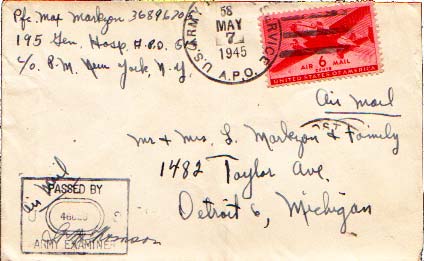 Pfc. Max Markzon 36896707
195 Gen. Hosp. A.P.O. 5
c/o P.M. New York, N.Y.
U.S. ARMY
58
MAY
7
1945
A.P.O.
AIR 6 MAIL
CENTS
UNITED STATES OF AMERICA
Air Mail
Mr & Mrs. L. Markzon & Family
1482 Taylor Ave.
Detroit 6, Michigan
Air Mail
PASSED BY
ARMY EXAMINER